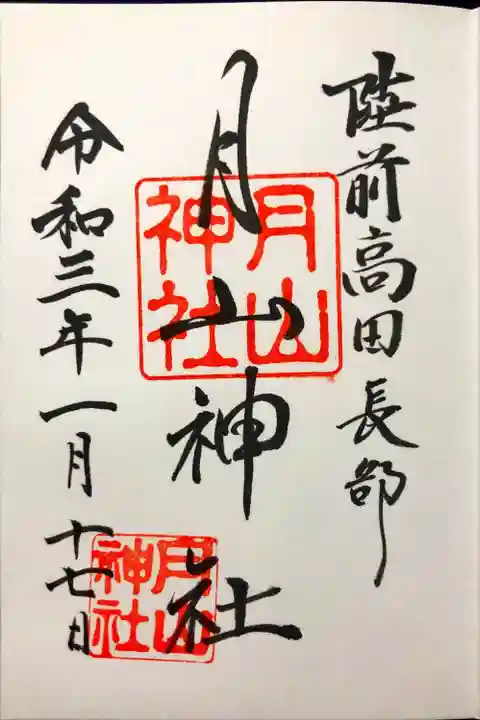 陸前高田長部
月山神社
月山神社
令和三年一月十七日
月山神社